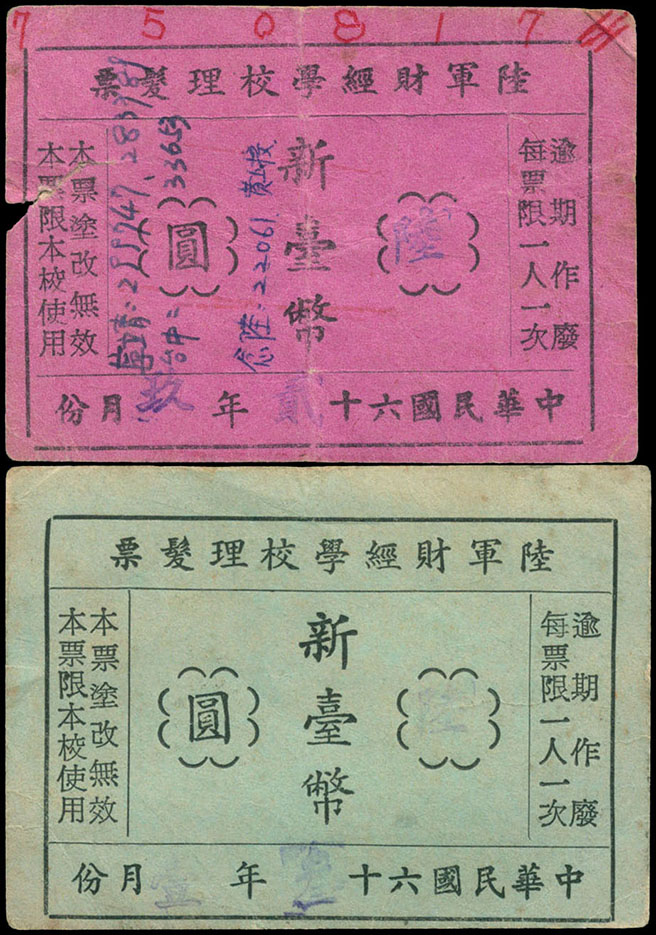 7 5 0 8 1 7
陸軍財經學校理髮票
逾期作廢
每票限一人一次
陸
新臺幣
22061
33653
圓
本票塗改無效
本票限本校使用
中華民國六十貳年玖月份
陸軍財經學校理髮票
逾期作廢
每票限一人一次
陸
新臺幣
圓
本票塗改無效
本票限本校使用
中華民國六十 年壹月份